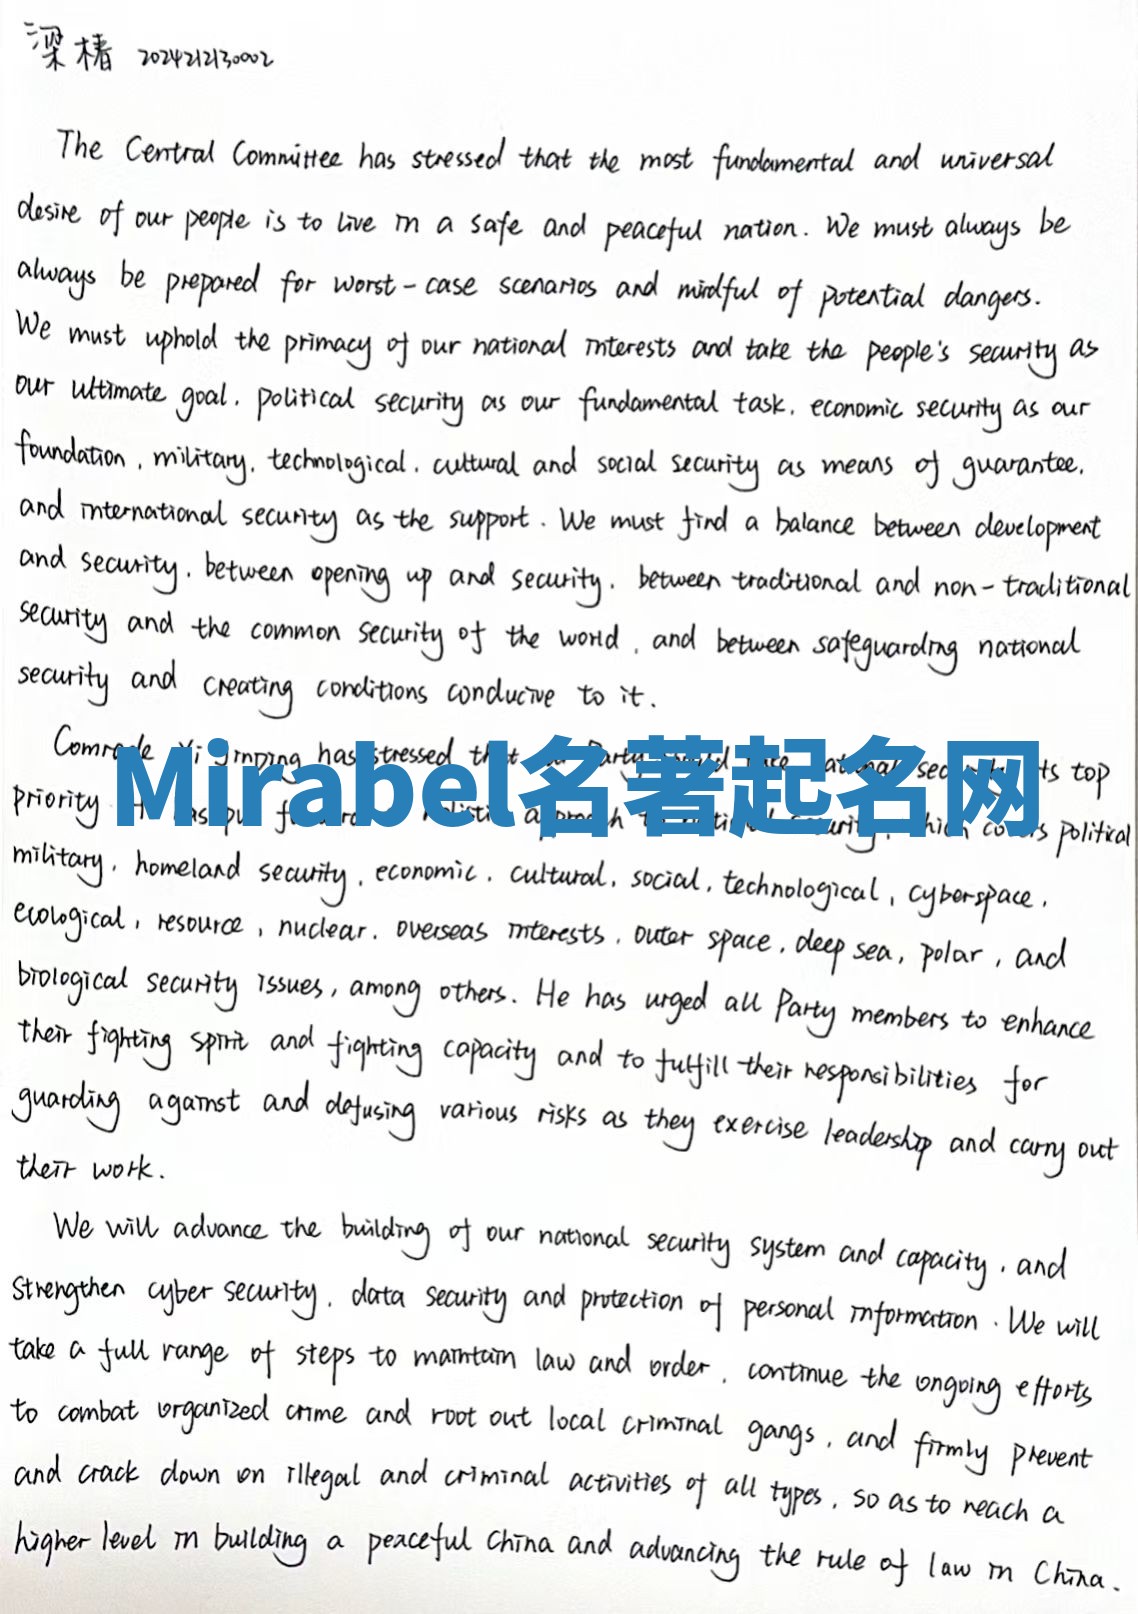 梁椿 2024212130002
The Central Committee has stressed that the most fundamental and universal
desire of our people is to live in a safe and peaceful nation. We must always be
always be prepared for worst-case scenarios and mindful of potential dangers.
We must uphold the primacy of our national interests and take the people's security as
our ultimate goal, political security as our fundamental task, economic security as our
foundation, military, technological, cultural and social security as means of guarantee,
and international security as the support. We must find a balance between development
and security, between opening up and security, between traditional and non-traditional
security and the common security of the world, and between safeguarding national
security and creating conditions conducive to it.
Comrade Xi Jinping has stressed that Party national security its top
Mirabel名著起名网
priority approach national security, which covers political
military, homeland security, economic, cultural, social, technological, cyberspace,
ecological, resource, nuclear, overseas interests, outer space, deep sea, polar, and
biological security issues, among others. He has urged all Party members to enhance
their fighting spirit and fighting capacity and to fulfill their responsibilities for
guarding against and defusing various risks as they exercise leadership and carry out
their work.
We will advance the building of our national security system and capacity, and
strengthen cyber security, data security and protection of personal information. We will
take a full range of steps to maintain law and order, continue the ongoing efforts
to combat organized crime and root out local criminal gangs, and firmly prevent
and crack down on illegal and criminal activities of all types, so as to reach a
higher level in building a peaceful China and advancing the rule of law in China.